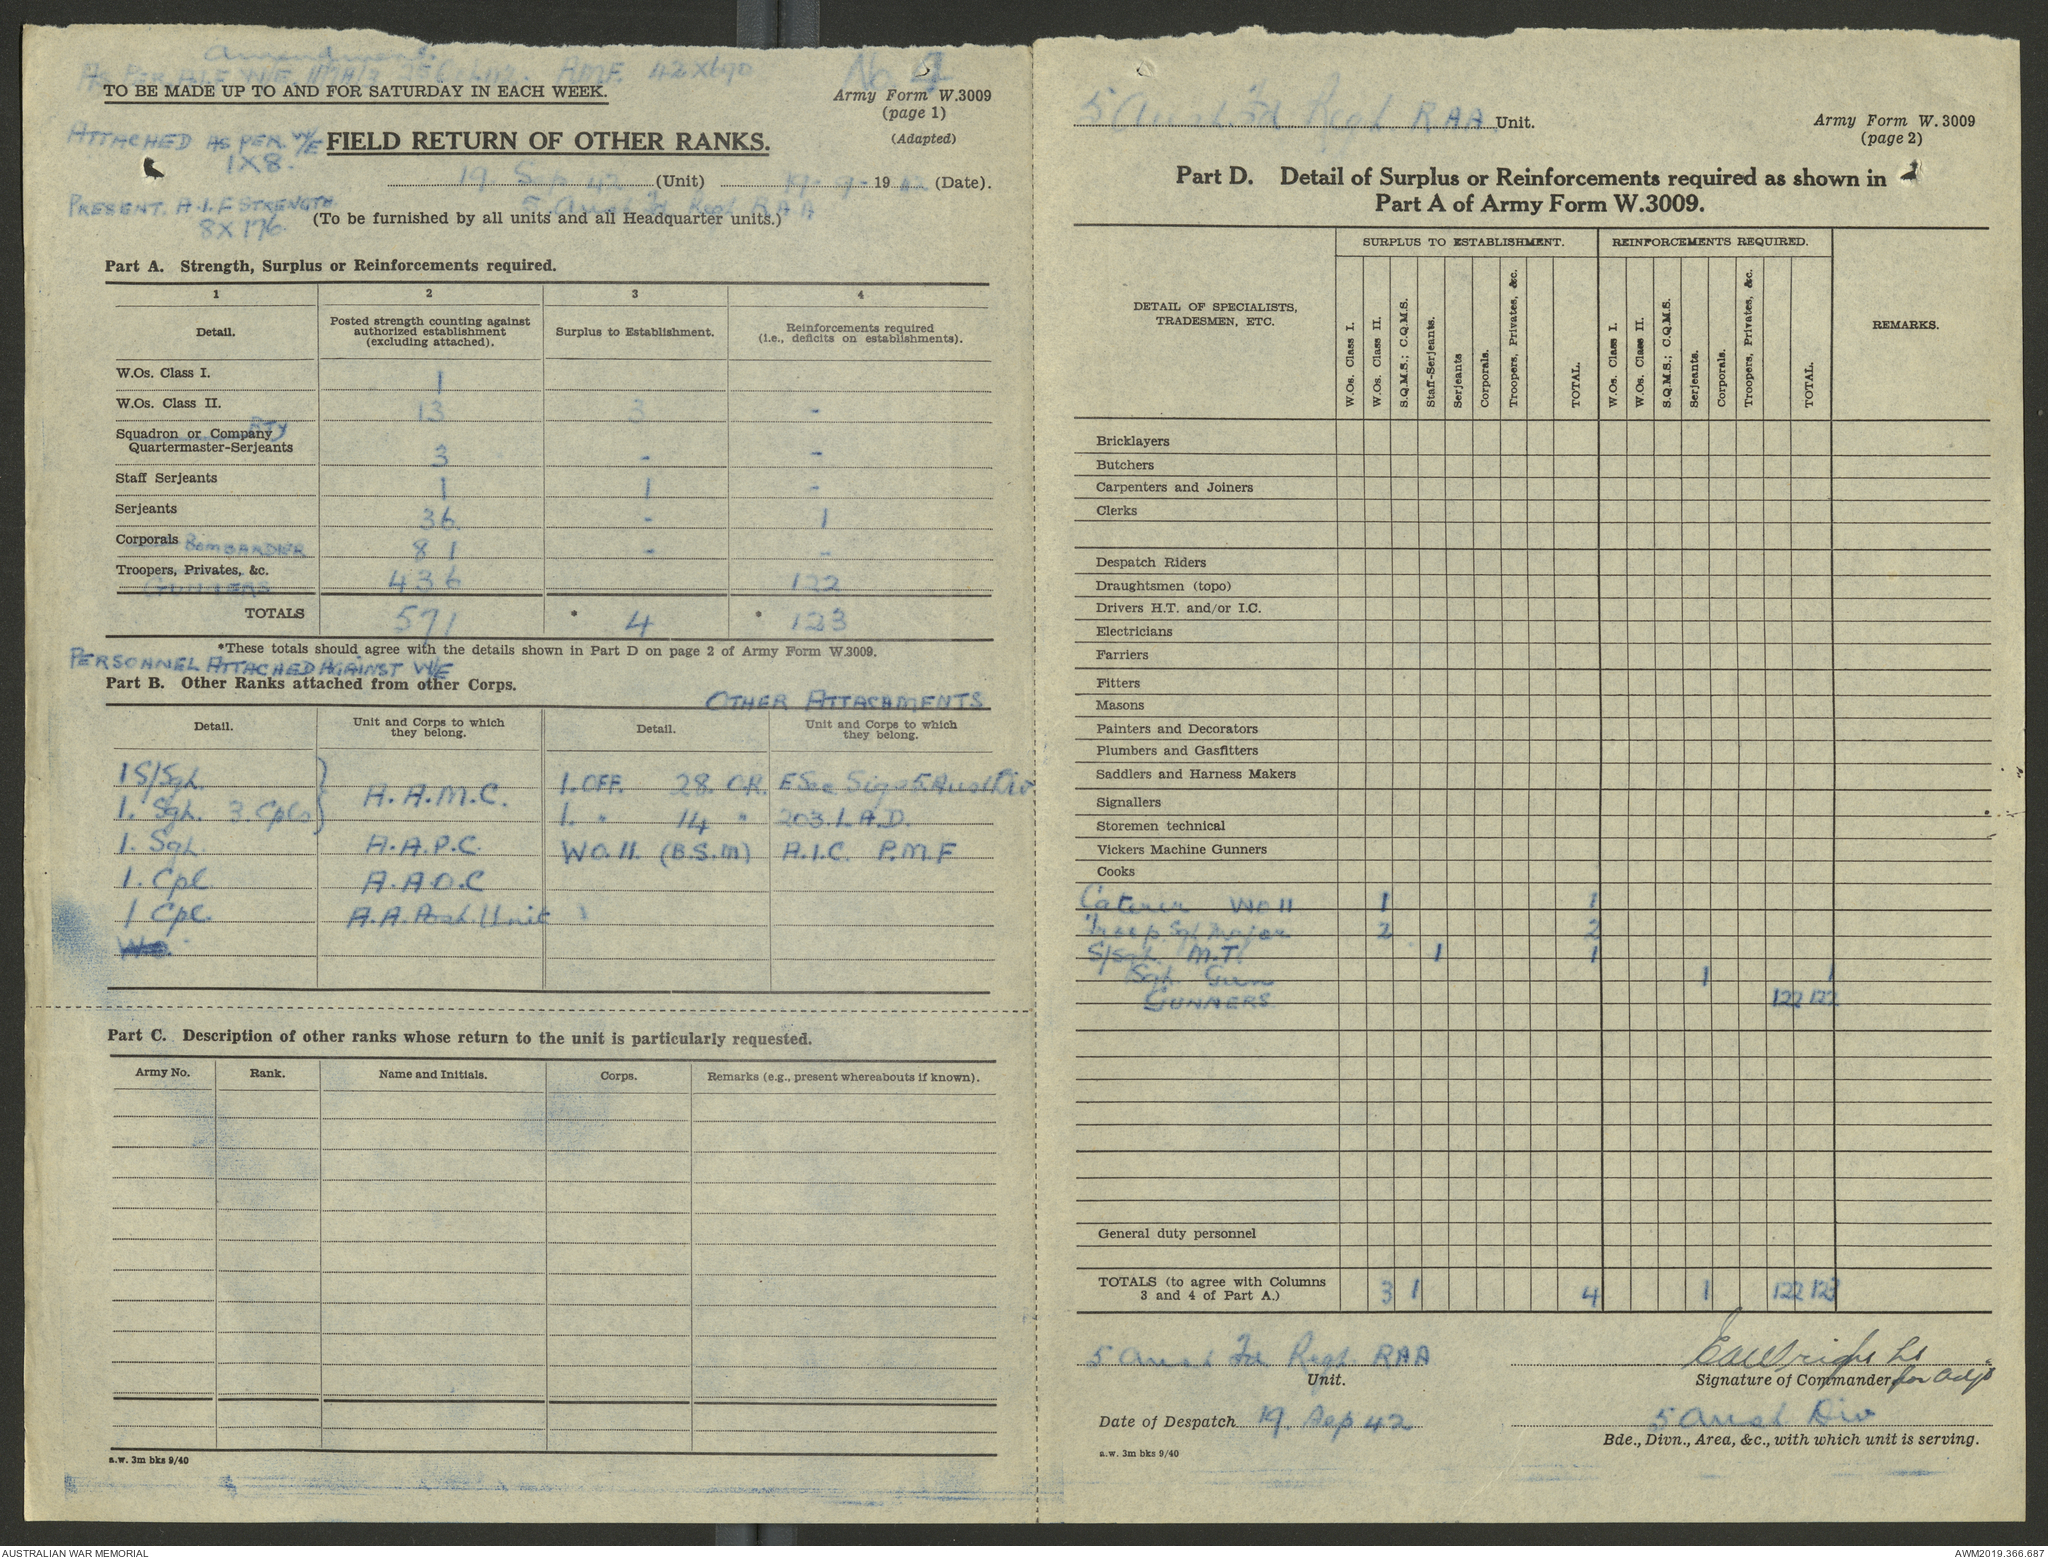 Amendment.
AS PER A.I.F W/E. 42X690
No.
TO BE MADE UP TO AND FOR SATURDAY IN EACH WEEK.
Army Form W.3009
(page 1)
(Adapted)
ATTACHED AS PER. W/E
1X8.
FIELD RETURN OF OTHER RANKS.
19. Sep 42 (Unit) 19-9-1942 (Date).
PRESENT. A.I.F STRENGTH
8X176.
5 Aust Fd Regt RAA
(To be furnished by all units and all Headquarter units.)
Part A. Strength, Surplus or Reinforcements required.
1 2 3 4
Detail. Posted strength counting against authorized establishment (excluding attached). Surplus to Establishment. Reinforcements required (i.e., deficits on establishments).
W.Os. Class I. 1
W.Os. Class II. 13 3 -
Squadron or Company BTY
Quartermaster-Serjeants 3 - -
Staff Serjeants 1 1 -
Serjeants 36 - 1
Corporals BOMBARDIER 81 - -
Troopers, Privates, &c. 436 122
GUNNERS
TOTALS 571 * 4 * 123
*These totals should agree with the details shown in Part D on page 2 of Army Form W.3009.
PERSONNEL ATTACHED AGAINST W/E
Part B. Other Ranks attached from other Corps.
OTHER ATTACHMENTS
Detail. Unit and Corps to which they belong. Detail. Unit and Corps to which they belong.
1 S/Sgt. 1. OFF. 28. O.R. Sigs 5 Aust Div
1. Sgt. 3. Cpls } A.A.M.C. 1. " 14 " 203. L.A.D.
1. Sgt. A.A.P.C. WO.II. (B.S.M) A.I.C. P.M.F
1. Cpl A.A.O.C
1 Cpl. A.A. Post. Unit
Part C. Description of other ranks whose return to the unit is particularly requested.
Army No. Rank. Name and Initials. Corps. Remarks (e.g., present whereabouts if known).
a.w. 3m bks 9/40
5 Aust. Fd Regt RAA. Unit.
Army Form W. 3009
(page 2)
Part D. Detail of Surplus or Reinforcements required as shown in
Part A of Army Form W.3009.
DETAIL OF SPECIALISTS, TRADESMEN, ETC. SURPLUS TO ESTABLISHMENT. REINFORCEMENTS REQUIRED. REMARKS.
W.Os. Class I. W.Os. Class II. S.Q.M.S.; C.Q.M.S. Staff-Serjeants. Serjeants Corporals. Troopers, Privates, &c. TOTAL. W.Os. Class I. W.Os. Class II. S.Q.M.S.; C.Q.M.S. Serjeants. Corporals. Troopers, Privates, &c. TOTAL.
Bricklayers
Butchers
Carpenters and Joiners
Clerks
Despatch Riders
Draughtsmen (topo)
Drivers H.T. and/or I.C.
Electricians
Farriers
Fitters
Masons
Painters and Decorators
Plumbers and Gasfitters
Saddlers and Harness Makers
Signallers
Storemen technical
Vickers Machine Gunners
Cooks
Caterer WO II 1 1
Troop Sgt Major 2 2
S/Sgt. M.T. 1 1
Sgt. Gun 1 1
GUNNERS 122 122
General duty personnel
TOTALS (to agree with Columns
3 and 4 of Part A.) 3 1 4 1 122 123
5 Aust Fd Regt. RAA
Unit.
Signature of Commander for Adjt
Date of Despatch 19. Sep 42
5 Aust Div
Bde., Divn., Area, &c., with which unit is serving.
a.w. 3m bks 9/40
AUSTRALIAN WAR MEMORIAL
AWM2019.366.687